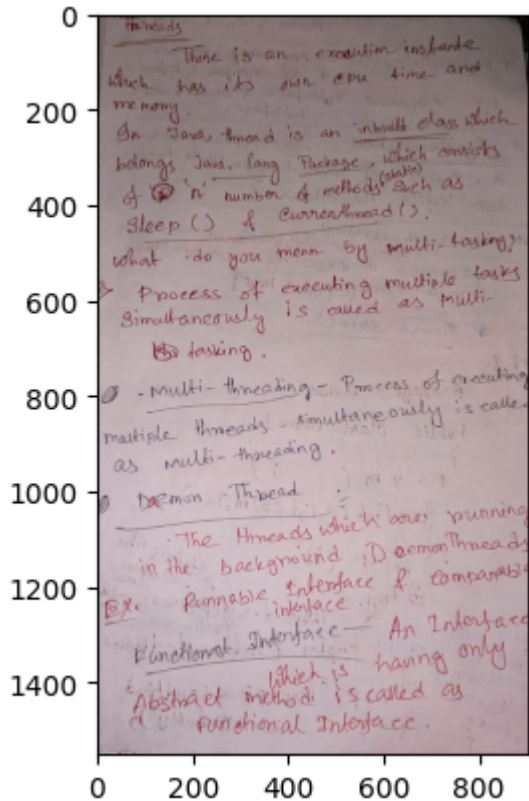 0
200
400
600
800
1000
1200
1400
0 200 400 600 800
Threads
There is an execution instante
which has its own cpu time and
memory.
In Java, thread is an inbuilt class which
belongs java.lang Package, which consists
of 'n' number of methods (static) such as
Sleep () & Currenthread().
what do you mean by multi-tasking?
Process of executing multiple tasks
Simultaneously is called as Multi-
tasking.
- Multi-threading - Process of executing
multiple threads simultaneously is called
as multi-threading.
Daemon Thread :
The threads which are running
in the background Daemon Threads
Ex. Runnable Interface & comparable
interface.
Functional Interface - An Interface
which is having only
Abstract method is called as
Functional Interface.